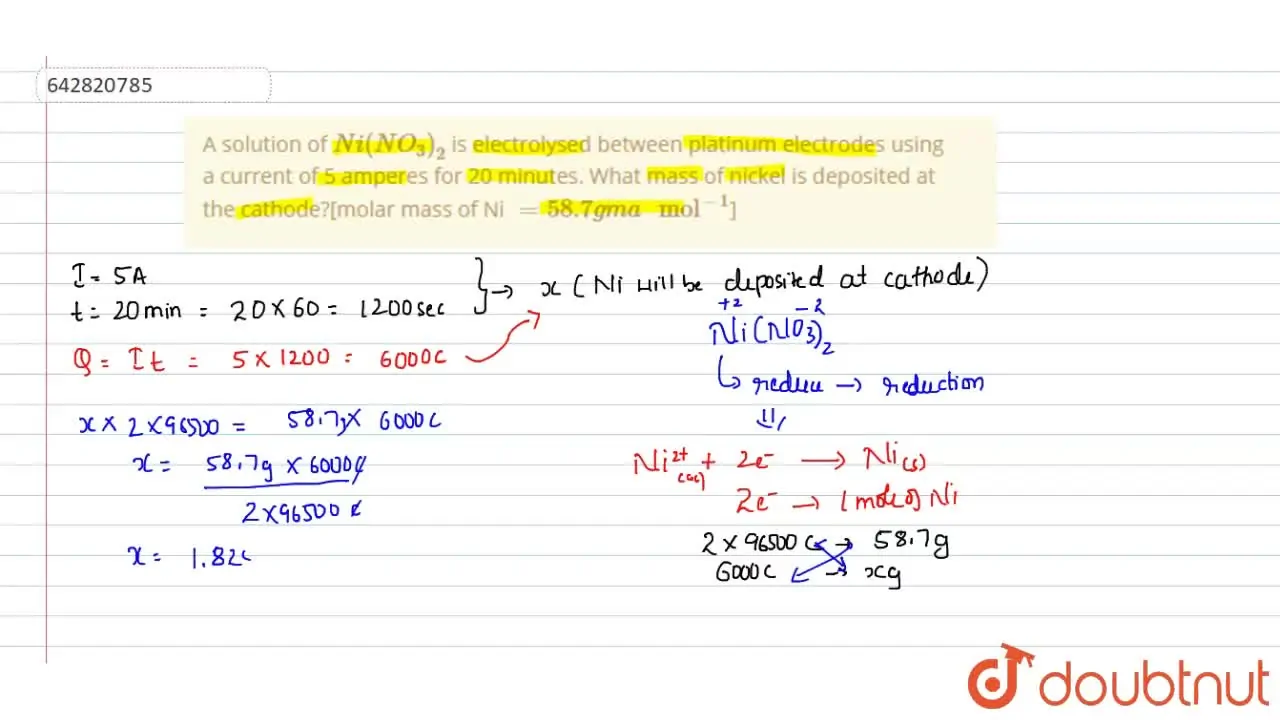 642820785
A solution of Ni(NO₃)₂ is electrolysed between platinum electrodes using
a current of 5 amperes for 20 minutes. What mass of nickel is deposited at
the cathode?[molar mass of Ni = 58.7gma mol⁻¹]
I = 5A
t = 20min = 20 × 60 = 1200sec
} → x (Ni will be deposited at cathode)
Q = It = 5 × 1200 = 6000C
x × 2 × 96500 = 58.7g × 6000C
x = 58.7g × 6000C
2 × 96500 C
x = 1.82
+2 -2
Ni(NO3)2
↳ reduce → reduction
⇓
Ni²⁺(aq) + 2e⁻ → Ni(s)
2e⁻ → 1 mole of Ni
2 × 96500 C → 58.7g
6000C → xg
doubtnut